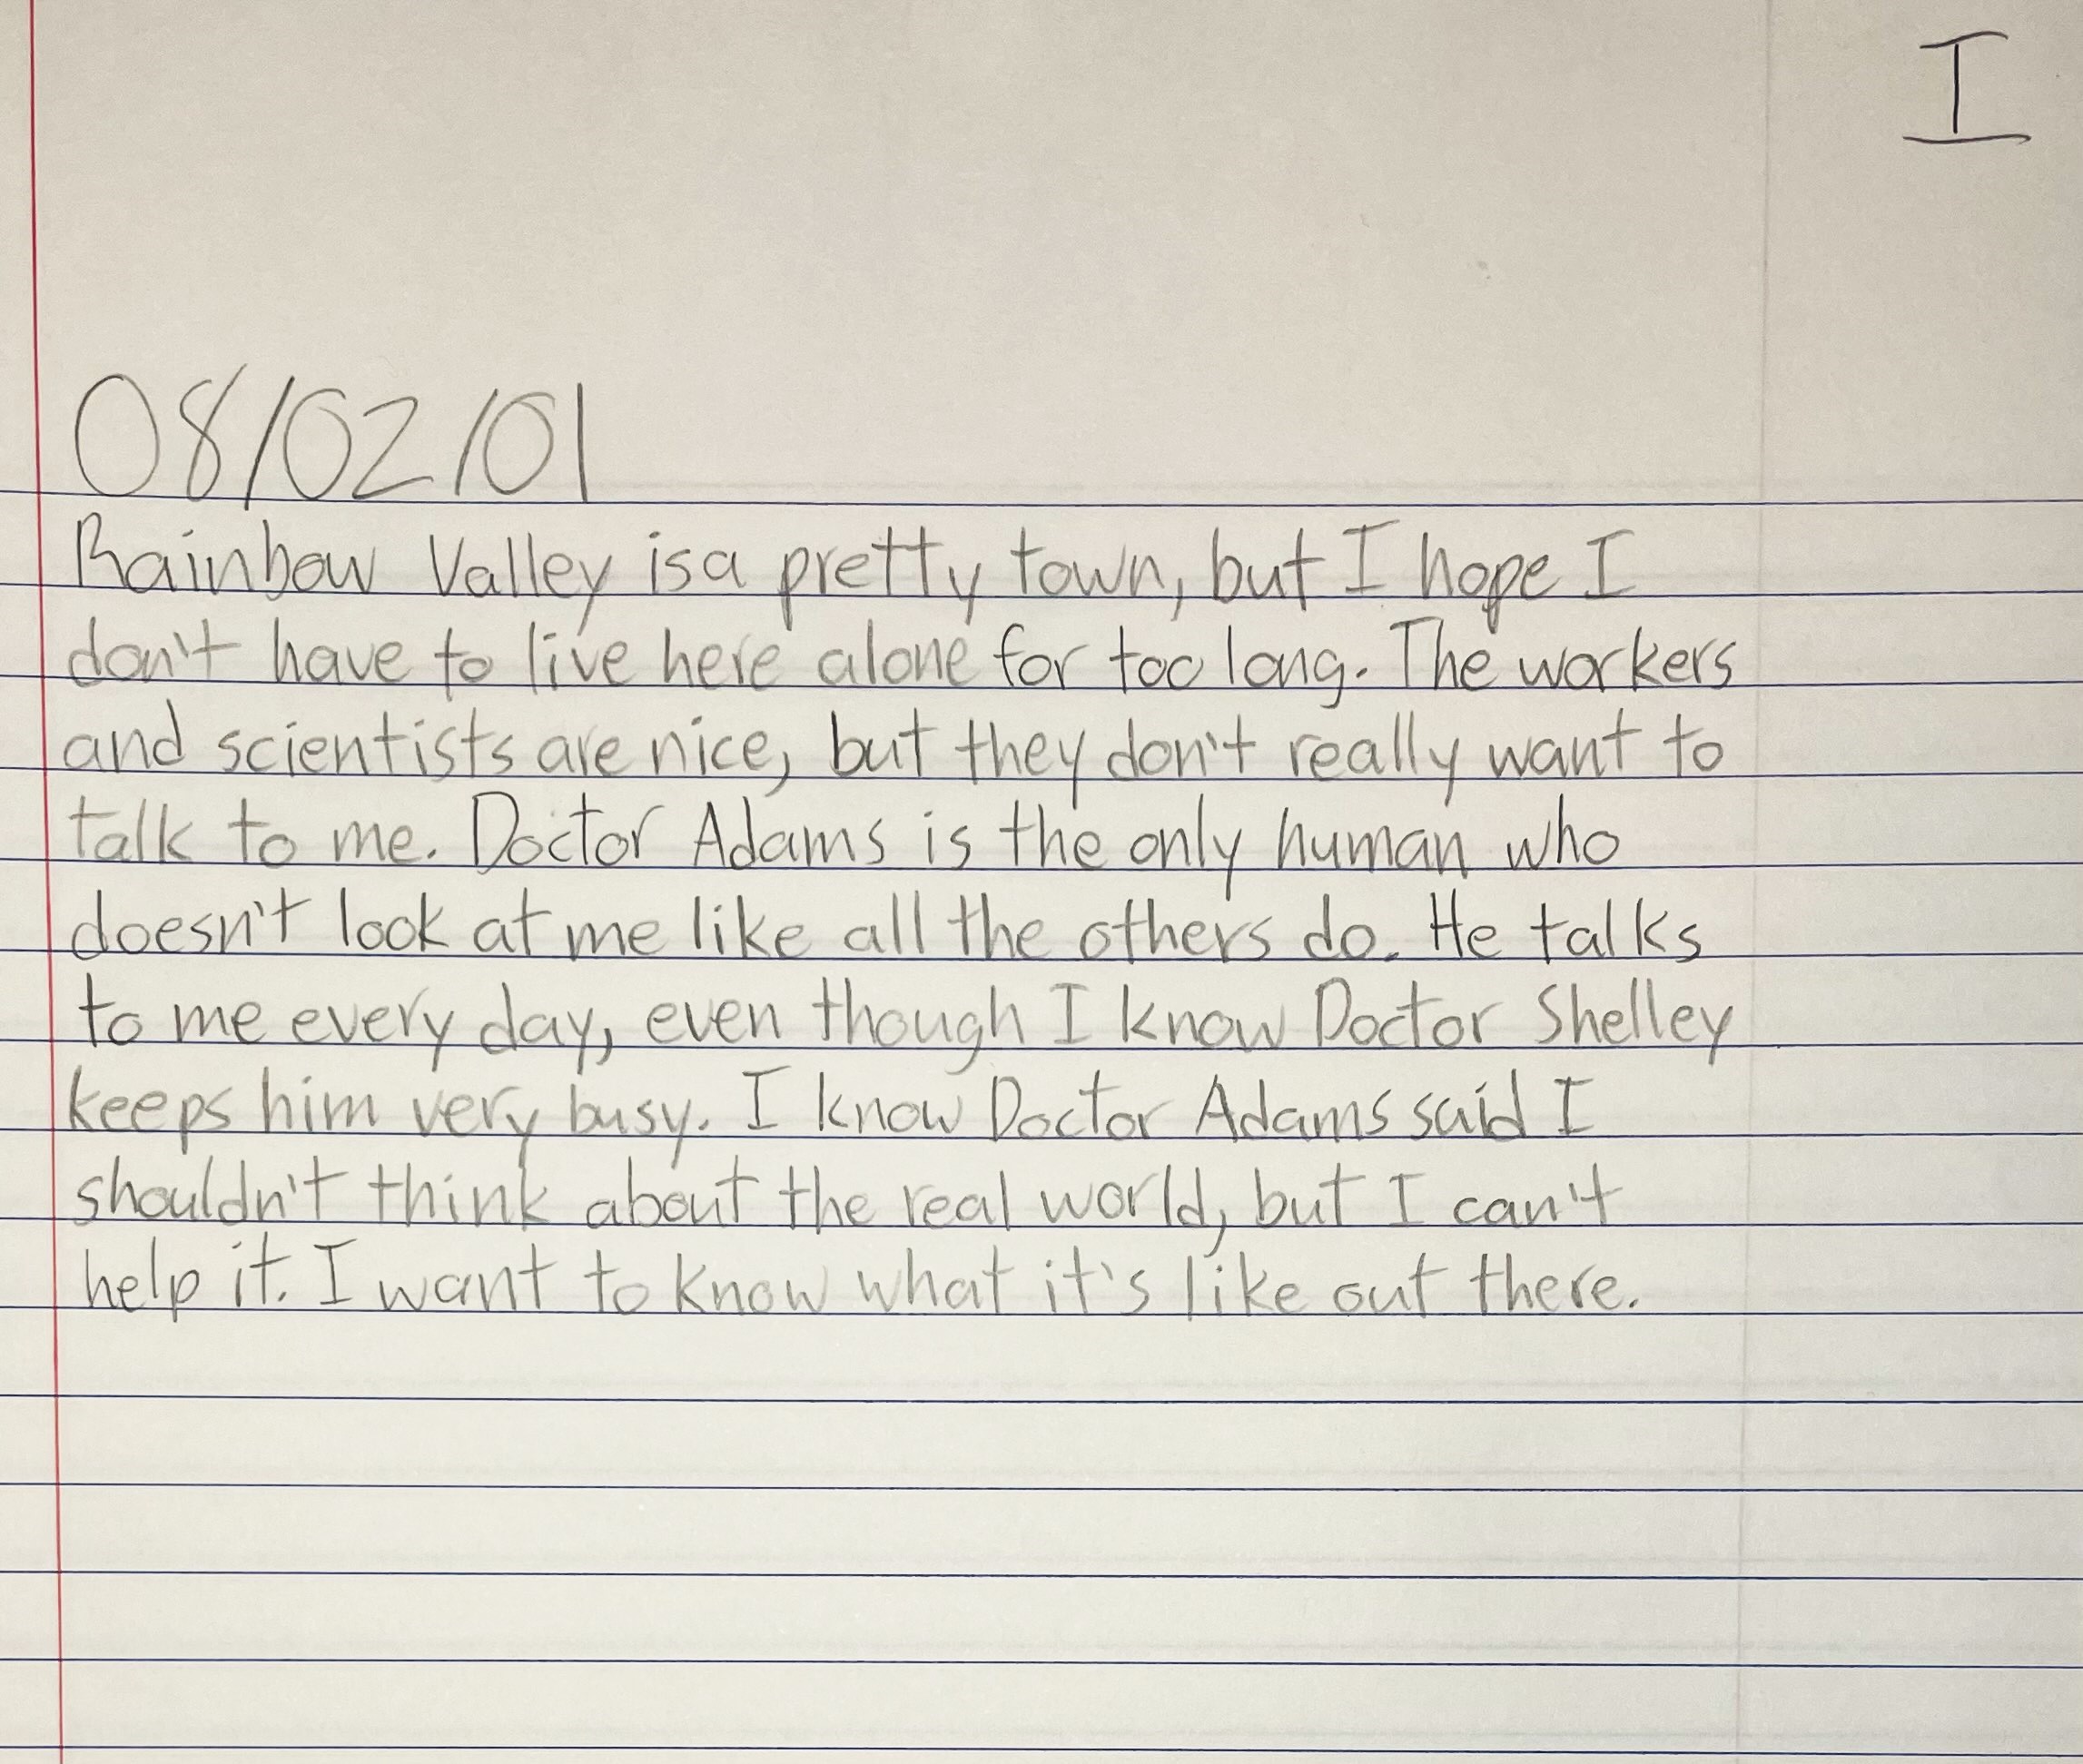 I
08/02/01
Rainbow Valley is a pretty town, but I hope I
don't have to live here alone for too long. The workers
and scientists are nice, but they don't really want to
talk to me. Doctor Adams is the only human who
doesn't look at me like all the others do. He talks
to me every day, even though I know Doctor Shelley
keeps him very busy. I know Doctor Adams said I
shouldn't think about the real world, but I can't
help it. I want to know what it's like out there.